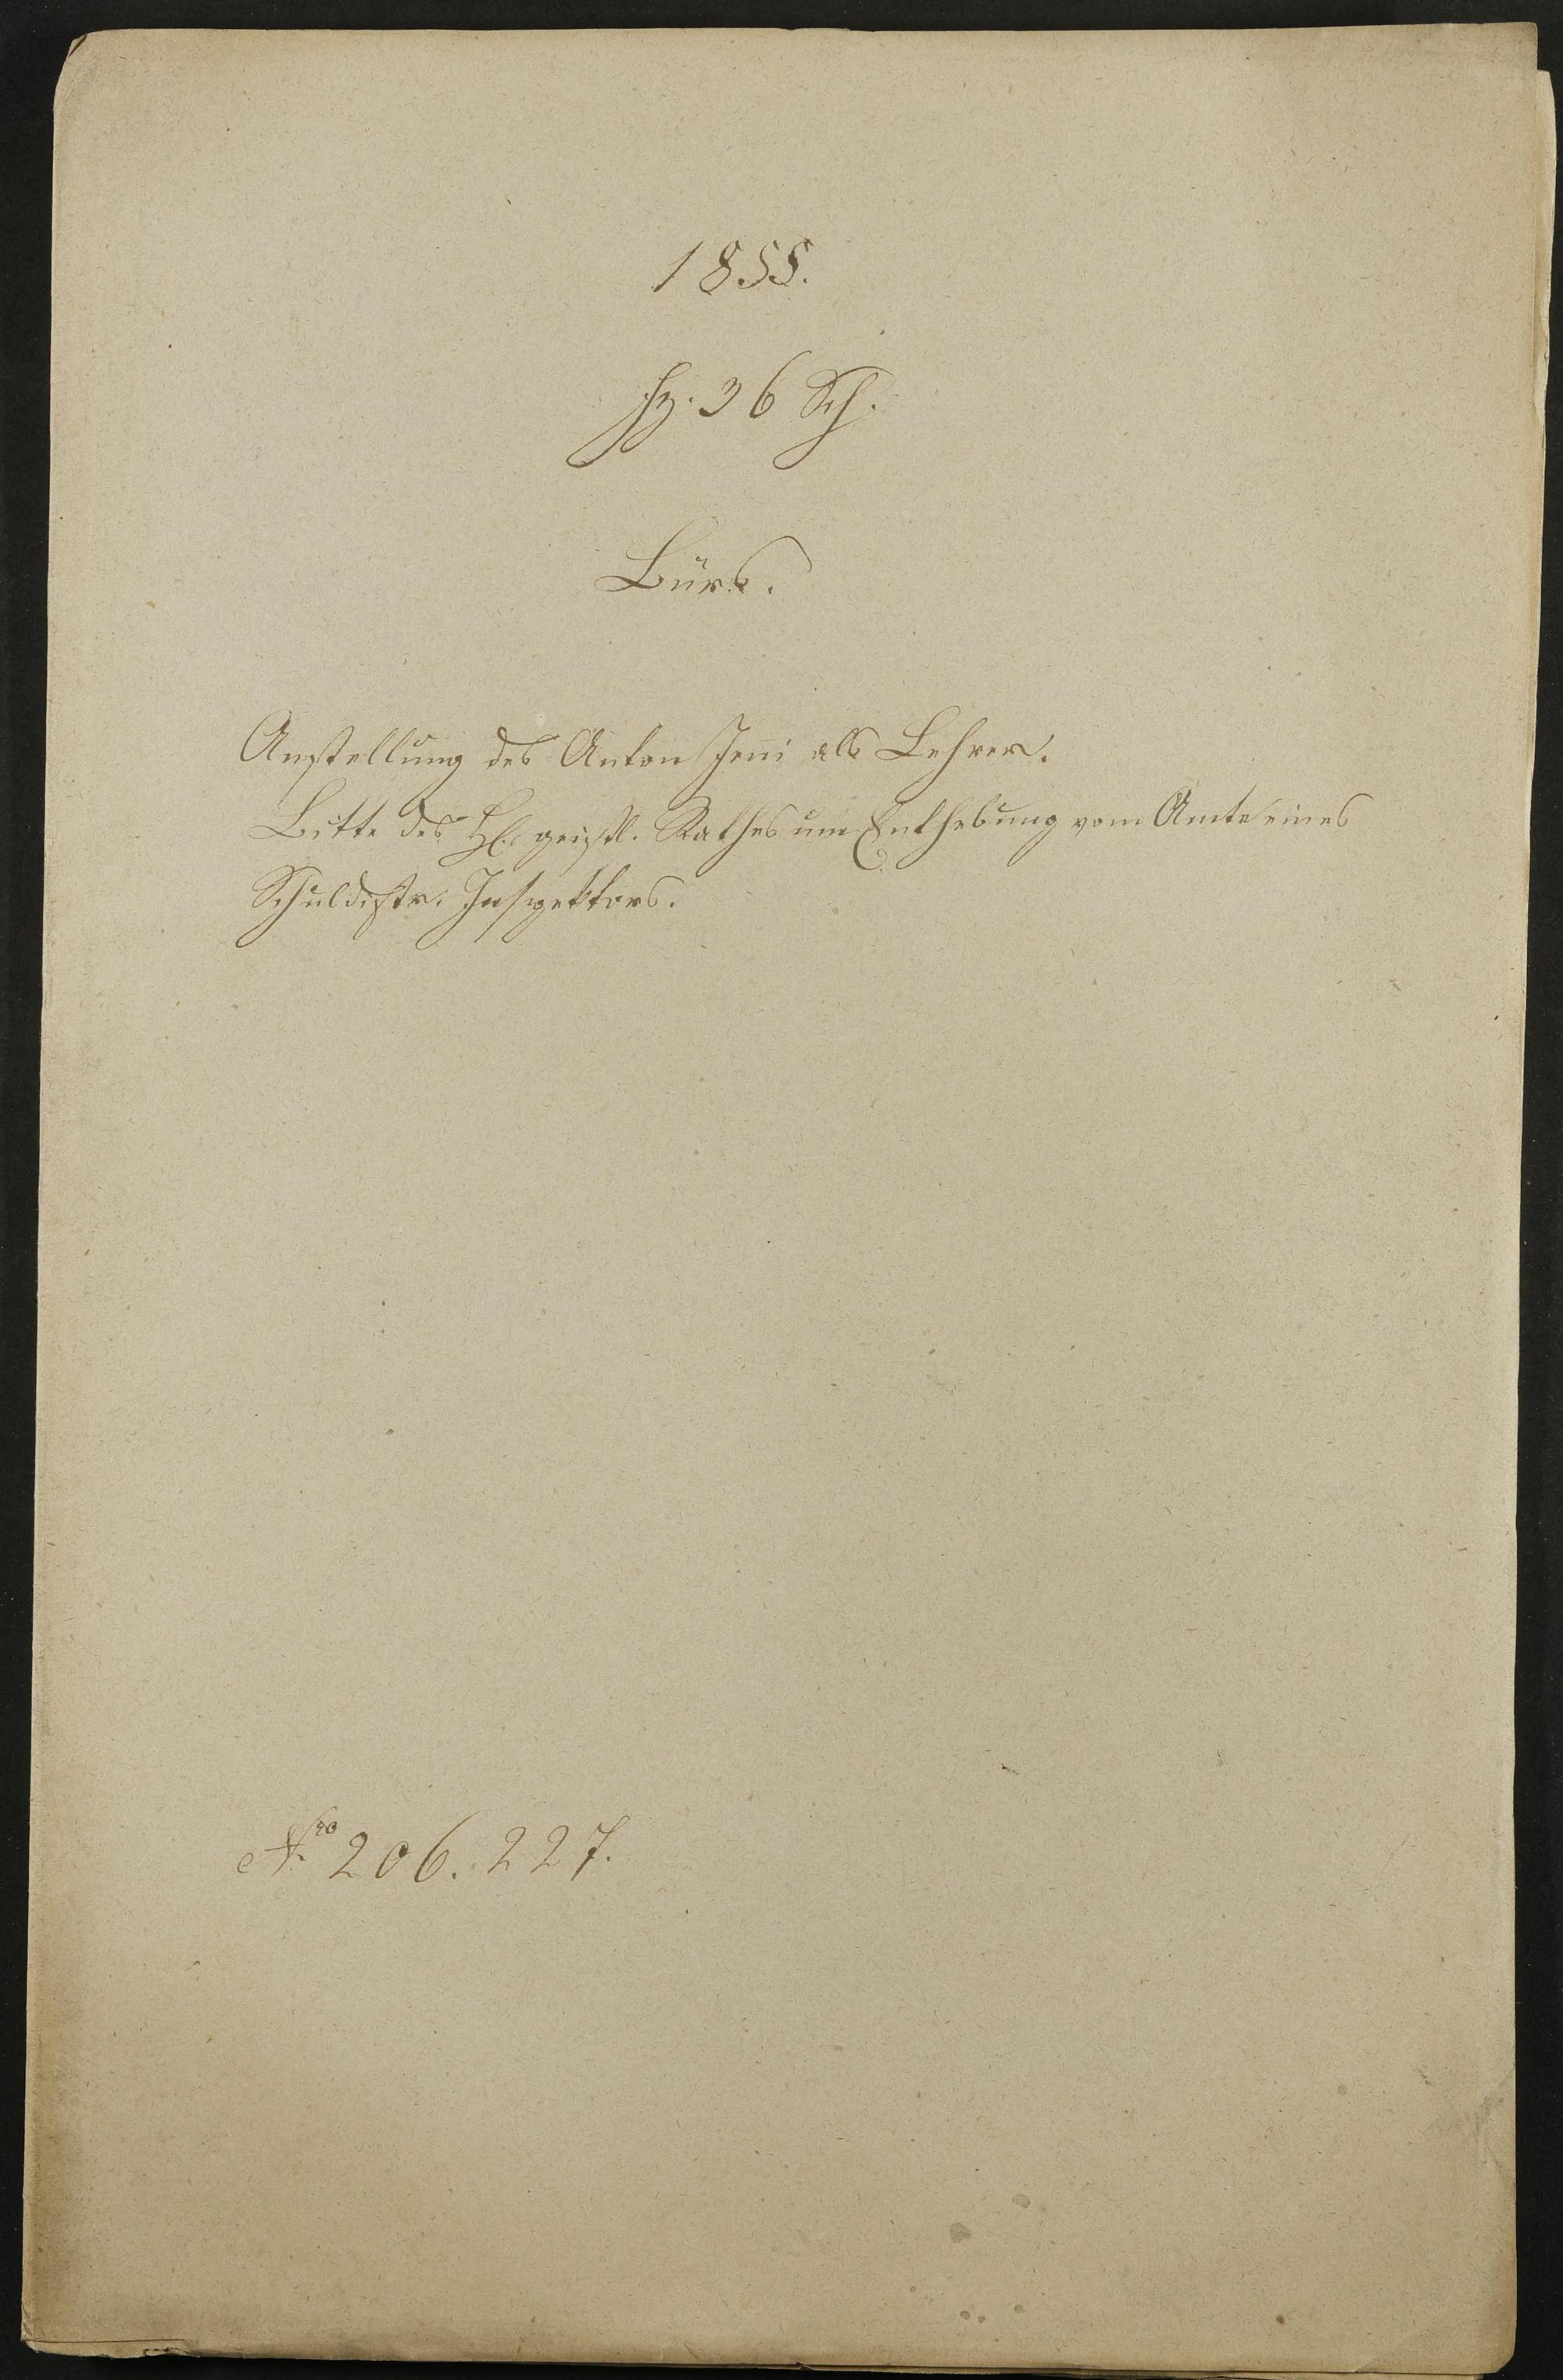 1855.
Fz. 36 Sch.
Bürs.
Anstellung des Anton Jeni als Lehrer.
Bitte des H. geistl. Rathes um Enthebung vom Amte eines
Schuldistr. Inspektors.
Nro 206. 227.